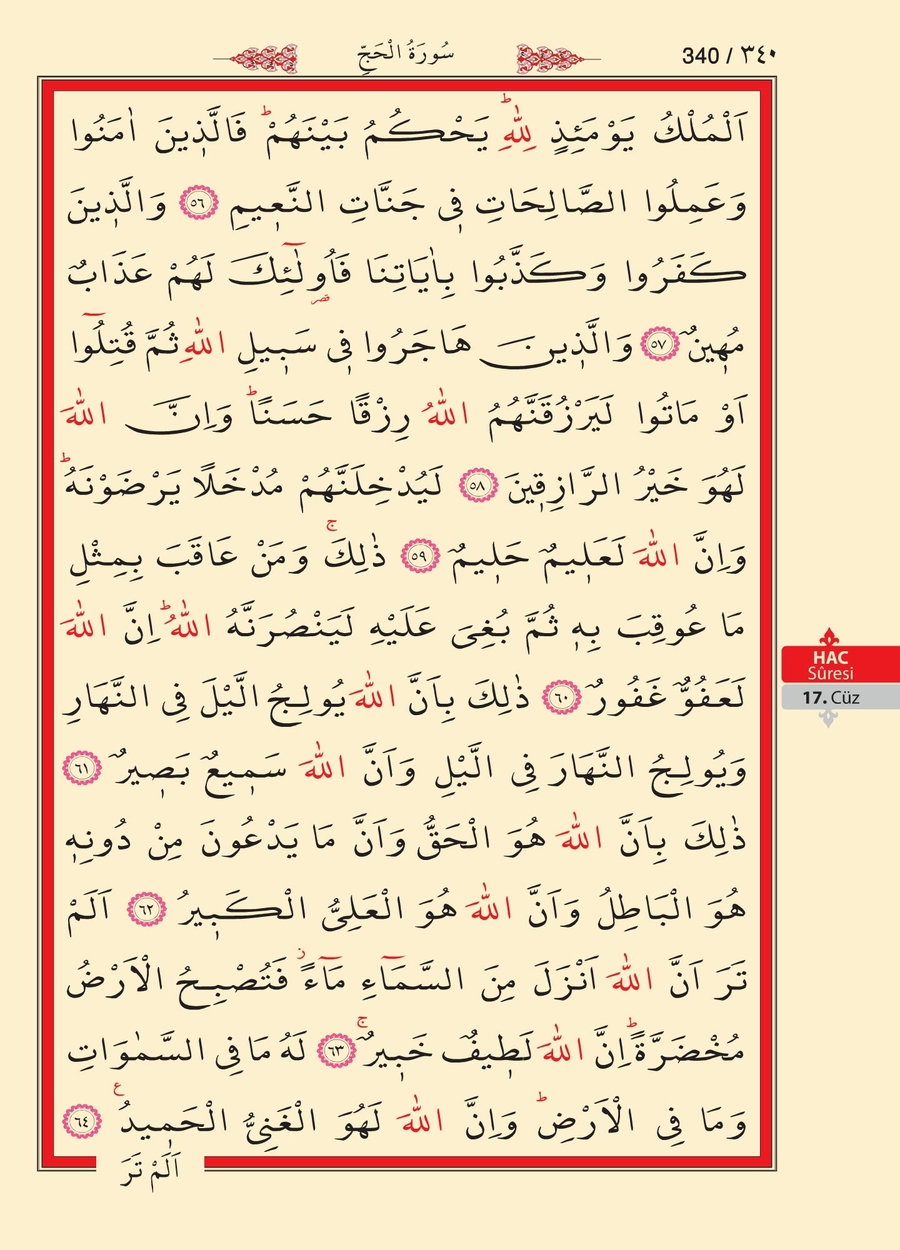 340 / ٣٤٠
سُورَةُ الْحَجِّ
اَلْمُلْكُ يَوْمَئِذٍ لِلّٰهِۜ يَحْكُمُ بَيْنَهُمْۜ فَالَّذ۪ينَ اٰمَنُوا
وَعَمِلُوا الصَّالِحَاتِ ف۪ي جَنَّاتِ النَّع۪يمِ ﴿٥٦﴾ وَالَّذ۪ينَ
كَفَرُوا وَكَذَّبُوا بِاٰيَاتِنَا فَاُو۬لٰٓئِكَ لَهُمْ عَذَابٌ
مُه۪ينٌ۟ ﴿٥٧﴾ وَالَّذ۪ينَ هَاجَرُوا ف۪ي سَب۪يلِ اللّٰهِ ثُمَّ قُتِلُٓوا
اَوْ مَاتُوا لَيَرْزُقَنَّهُمُ اللّٰهُ رِزْقًا حَسَنًاۜ وَاِنَّ اللّٰهَ
لَهُوَ خَيْرُ الرَّازِق۪ينَ ﴿٥٨﴾ لَيُدْخِلَنَّهُمْ مُدْخَلًا يَرْضَوْنَهُۜ
وَاِنَّ اللّٰهَ لَعَل۪يمٌ حَل۪يمٌ ﴿٥٩﴾ ذٰلِكَۚ وَمَنْ عَاقَبَ بِمِثْلِ
مَا عُوقِبَ بِه۪ ثُمَّ بُغِيَ عَلَيْهِ لَيَنْصُرَنَّهُ اللّٰهُۜ اِنَّ اللّٰهَ
لَعَفُوٌّ غَفُورٌ ﴿٦٠﴾ ذٰلِكَ بِاَنَّ اللّٰهَ يُولِجُ الَّيْلَ فِي النَّهَارِ
وَيُولِجُ النَّهَارَ فِي الَّيْلِ وَاَنَّ اللّٰهَ سَم۪يعٌ بَص۪يرٌ ﴿٦١﴾
ذٰلِكَ بِاَنَّ اللّٰهَ هُوَ الْحَقُّ وَاَنَّ مَا يَدْعُونَ مِنْ دُونِه۪
هُوَ الْبَاطِلُ وَاَنَّ اللّٰهَ هُوَ الْعَلِيُّ الْكَب۪يرُ ﴿٦٢﴾ اَلَمْ
تَرَ اَنَّ اللّٰهَ اَنْزَلَ مِنَ السَّمَٓاءِ مَٓاءًۘ فَتُصْبِحُ الْاَرْضُ
مُخْضَرَّةًۜ اِنَّ اللّٰهَ لَط۪يفٌ خَب۪يرٌۚ ﴿٦٣﴾ لَهُ مَا فِي السَّمٰوَاتِ
وَمَا فِي الْاَرْضِۜ وَاِنَّ اللّٰهَ لَهُوَ الْغَنِيُّ الْحَم۪يدُ۟ ﴿٦٤﴾
اَلَمْ تَرَ
HAC
Sûresi
17. Cüz